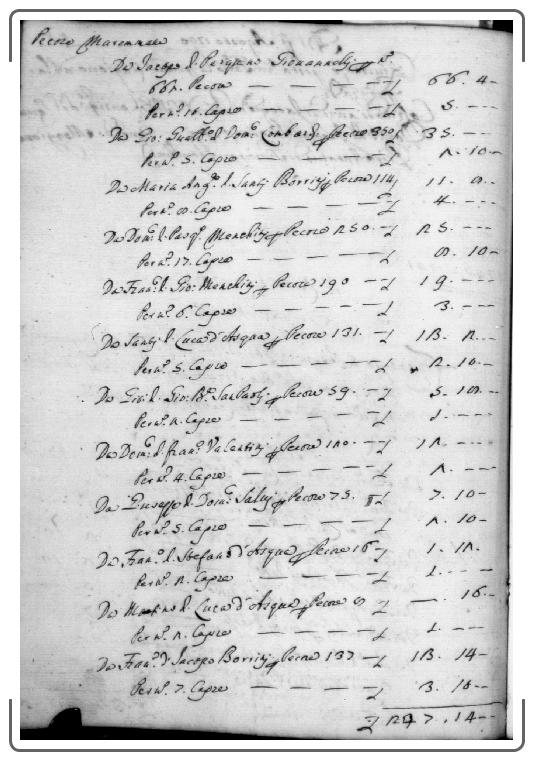 Pecore Maremmane
Da Jacopo d. Pellegrino Giovannelli p n.
662. Pecore — — — — £ 66. 4 -
Per n. 10. Capre — — — £ 5. ---
Da Gio: Gualb. d. Dom. Lombardi p Pecore 350 £ 35. ---
Per n. 5. Capre — — — £ 2. 10 --
Da Maria Ang. d. Santi Borrini p Pecore 114 £ 11. 8. --
Per n. 8. Capre — — — £ 4. ---
Da Dom. d. Pasq. Menchini p Pecore 250. — £ 25. ---
Per n. 17. Capre — — — £ 8. 10 -
Da Fran. d. Gio: Menchini p Pecore 190 — £ 19. ---
Per n. 6. Capre — — — £ 3. ---
Da Santi d. Luca d'Asqua p Pecore 131. — £ 13. 2. --
Per n. 5. Capre — — — £ 2. 10. --
Da Gio: d. Gio: Ba. San Paoli p Pecore 59. — £ 5. 18. --
Per n. 2. Capre — — — £ 1. ---
Da Dom. d. Fran. Valentini p Pecore 120. — £ 12. ---
Per n. 4. Capre — — — £ 2. ---
Da Giuseppe d. Dom. Salvi p Pecore 75. £ 7. 10 -
Per n. 5. Capre — — — £ 2. 10 --
Da Fran. d. Stefano d'Asqua p Pecore 16 £ 1. 12.
Per n. 2. Capre — — — £ 1. ---
Da Marino d. Luca d'Asqua p Pecore 8 £ — . 16. --
Per n. 2. Capre — — — £ 1. ---
Da Fran. d. Jacopo Borrini p Pecore 137 — £ 13. 14 -
Per n. 7. Capre — — — £ 3. 10 --
£ 247. 14 --